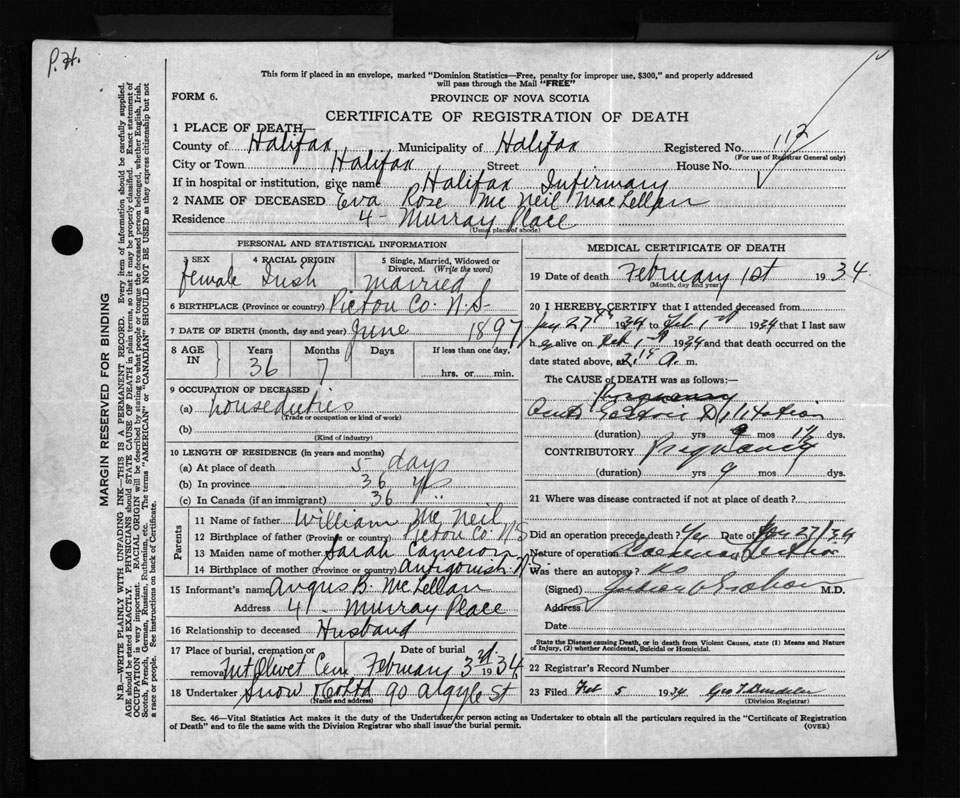 P.H.
This form if placed in an envelope, marked "Dominion Statistics—Free, penalty for improper use, $300," and properly addressed
will pass through the Mail "FREE"
FORM 6.
PROVINCE OF NOVA SCOTIA
CERTIFICATE OF REGISTRATION OF DEATH
1 PLACE OF DEATH—
County of Halifax Municipality of Halifax Registered No. 112
(For use of Registrar General only)
City or Town Halifax Street House No.
If in hospital or institution, give name Halifax Infirmary
2 NAME OF DECEASED Eva Rose McNeil MacLellan
Residence 4- Murray Place
(Usual place of abode)
PERSONAL AND STATISTICAL INFORMATION
3 SEX 4 RACIAL ORIGIN 5 Single, Married, Widowed or
Divorced. (Write the word)
female Irish Married
6 BIRTHPLACE (Province or country) Pictou Co. N.S.
7 DATE OF BIRTH (month, day and year) June 1897
8 AGE IN Years Months Days If less than one day,
36 7 hrs. or min.
9 OCCUPATION OF DECEASED
(a) house duties
(Trade or occupation or kind of work)
(b)
(Kind of industry)
10 LENGTH OF RESIDENCE (in years and months)
(a) At place of death 5 days
(b) In province 36 yrs
(c) In Canada (if an immigrant) 36 "
Parents
11 Name of father William McNeil
12 Birthplace of father (Province or country) Pictou Co. N.S.
13 Maiden name of mother Sarah Cameron
14 Birthplace of mother (Province or country) Antigonish N.S.
15 Informant's name Angus B. McLellan
Address 4 - Murray Place
16 Relationship to deceased Husband
17 Place of burial, cremation or Date of burial
removal Mt Olivet Cem. February 3rd 1934
18 Undertaker Snow 90 Argyle St
(Name and address)
MEDICAL CERTIFICATE OF DEATH
19 Date of death February 1st 1934.
(Month, day and year)
20 I HEREBY CERTIFY that I attended deceased from
Jan 27th 1934 to Feb. 1st 1934 that I last saw
her alive on Feb. 1st 1934 and that death occurred on the
date stated above, at 2.15 A. m.
The CAUSE OF DEATH was as follows:—
Pregnancy
Dilitation
(duration) yrs mos dys.
CONTRIBUTORY Pregnancy
(duration) yrs 9 mos dys.
21 Where was disease contracted if not at place of death?
Did an operation precede death? Yes Date of Jan 27/34
Nature of operation
Was there an autopsy? no
(Signed) M.D.
Address
Date
State the Disease causing Death, or in death from Violent Causes, state (1) Means and Nature
of Injury, (2) whether Accidental, Suicidal or Homicidal.
22 Registrar's Record Number
23 Filed Feb 5 1934 Geo
(Division Registrar)
Sec. 46—Vital Statistics Act makes it the duty of the Undertaker or person acting as Undertaker to obtain all the particulars required in the "Certificate of Registration
of Death" and to file the same with the Division Registrar who shall issue the burial permit. (OVER)
MARGIN RESERVED FOR BINDING
N.B.—WRITE PLAINLY WITH UNFADING INK—THIS IS A PERMANENT RECORD. Every item of information should be carefully supplied.
AGE should be stated EXACTLY. PHYSICIANS should STATE CAUSE OF DEATH in plain terms, so that it may be properly classified. Exact statement of
OCCUPATION is very important. RACIAL ORIGIN will be described by stating to what people or tongue the deceased person belonged, whether English, Irish,
Scotch, French, German, Russian, Ruthenian, etc. The terms "AMERICAN" or "CANADIAN" SHOULD NOT BE USED as they express citizenship but not
a race or people. See instructions on back of Certificate.